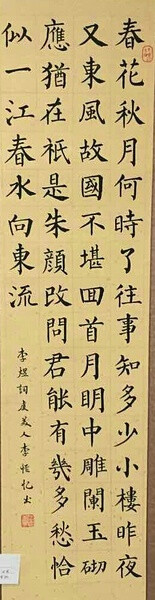 春花秋月何時了往事知多少小樓昨夜
又東風故國不堪回首月明中雕闌玉砌
應猶在祇是朱顏改問君能有幾多愁恰
似一江春水向東流
李煜詞虞美人李恆忆书